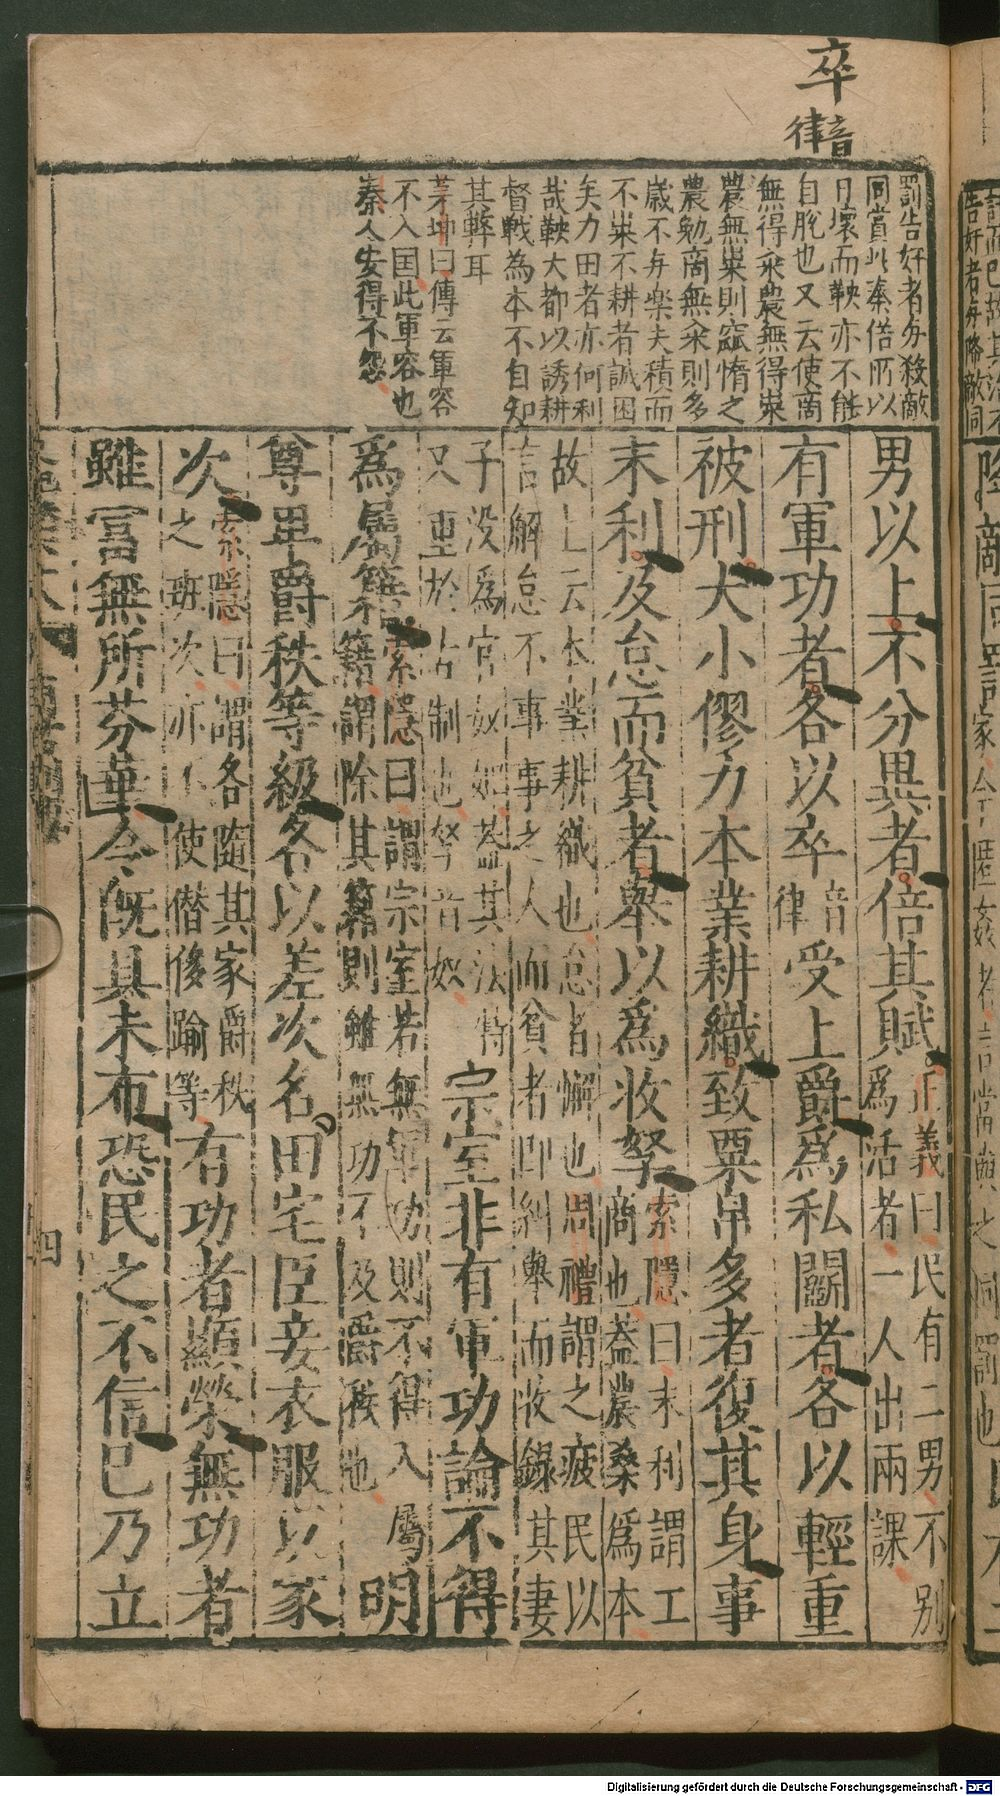 卒音律
罰告奸者与殺敵
同賞此秦俗所以
日壞而鞅亦不能
自脫也又云使商
無得糴農無得糶
農無糶則窳惰之
農勉商無糴則多
歲不与楽夫積而
不糶不耕者誠困
矣力田者亦何利
哉鞅大都以誘耕
督戰為本不自知
其弊耳
茅坤曰傳云軍容
不入国此軍容也
秦人安得不怨
男以上不分異者倍其賦正義曰民有二男不別為活者一人出兩課
有軍功者各以卒音律受上爵爲私鬬者各以輕重
被刑大小僇力本業耕織致粟帛多者復其身事
末利及怠而貧者舉以爲收孥索隱曰末利謂工商也蓋農桑爲本
故上云本業耕織也怠者懈也周禮謂之疲民以
言懈怠不事事之人而貧者即糾舉而收錄其妻
子没爲官奴婢蓋其法特
只重於古制也孥音奴宗室非有軍功論不得
爲屬籍索隱曰謂宗室若無軍功則不得入屬籍謂除其籍則雖無功不及爵秩也明
尊卑爵秩等級各以差次名田宅臣妾衣服以家
次索隱曰謂各隨其家爵秩之班次亦不使僣侈踰等有功者顯榮無功者
雖富無所芬華令旣具未布恐民之不信巳乃立
四
告奸者与降敵同
Digitalisierung gefördert durch die Deutsche Forschungsgemeinschaft - DFG